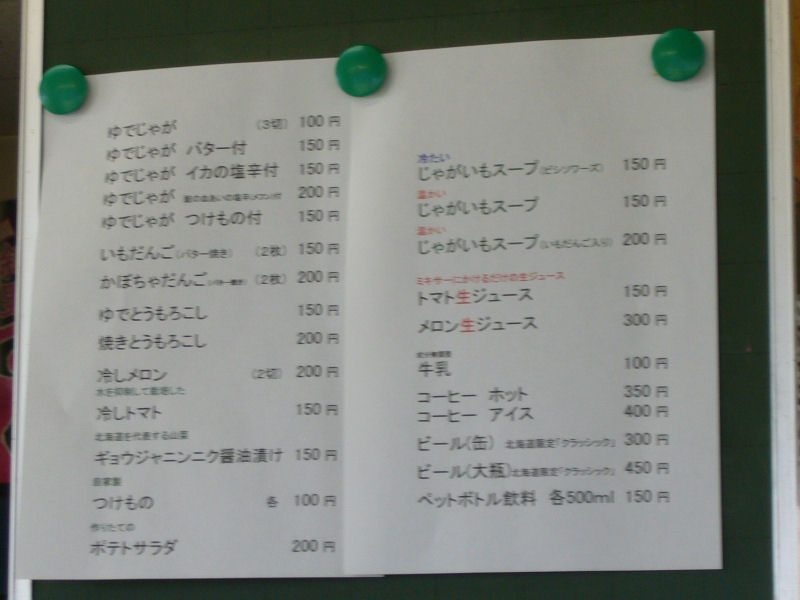 ゆでじゃが （3切） 100 円
ゆでじゃが バター付 150 円
ゆでじゃが イカの塩辛付 150 円
ゆでじゃが 200 円
ゆでじゃが つけもの付 150 円
いもだんご(バター焼き) （2枚） 150 円
かぼちゃだんご(バター焼き) （2枚） 200 円
ゆでとうもろこし 150 円
焼きとうもろこし 200 円
冷しメロン （2切） 200 円
水を抑制して栽培した
冷しトマト 150 円
北海道を代表する山菜
ギョウジャニンニク醤油漬け 150 円
自家製
つけもの 各 100 円
作りたての
ポテトサラダ 200 円
冷たい
じゃがいもスープ(ビシソワーズ) 150 円
温かい
じゃがいもスープ 150 円
温かい
じゃがいもスープ(いもだんご入り) 200 円
ミキサーにかけるだけの生ジュース
トマト生ジュース 150 円
メロン生ジュース 300 円
牛乳 100 円
コーヒー ホット 350 円
コーヒー アイス 400 円
ビール(缶) 北海道限定「クラッシック」 300 円
ビール(大瓶)北海道限定「クラッシック」 450 円
ペットボトル飲料 各500ml 150 円